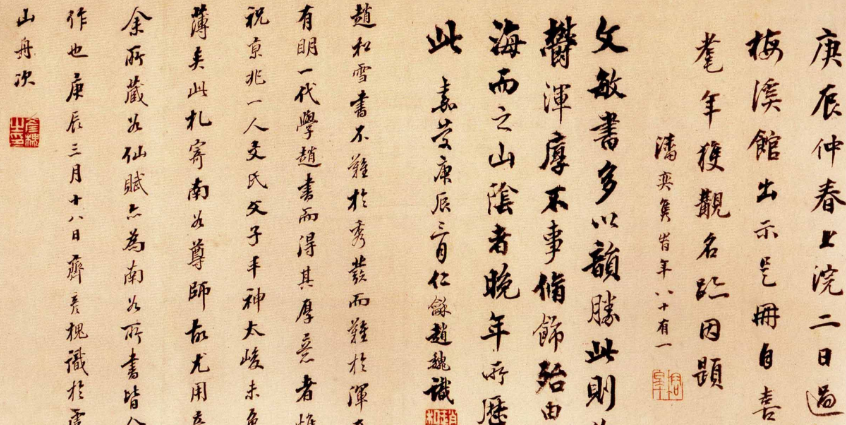 庚辰仲春上浣二日過
梅溪館出示是冊自喜
耄年獲觀名跡因題
潘奕雋時年八十有一
文敏書多以韻勝此則
鬱渾厚不事脩飾殆由
海而之山陰者晚年所歷
此 嘉慶庚辰三月仁龢趙魏識
趙松雪書不難於秀發而難於渾
有明一代學趙書而得其厚意者惟
祝京兆一人文氏父子丰神太峻未免
薄矣此札寄南谷尊師故尤用
余所藏谷仙賦亦為南谷所書皆
作也庚辰三月十八日齊彥槐識於
山舟次